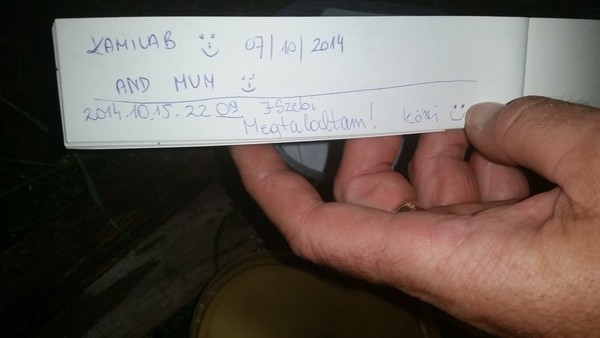 KAMILAB 07/10/2014
AND MUM
2014.10.15. 22 09 JSzebi
Megtaláltam! köszi